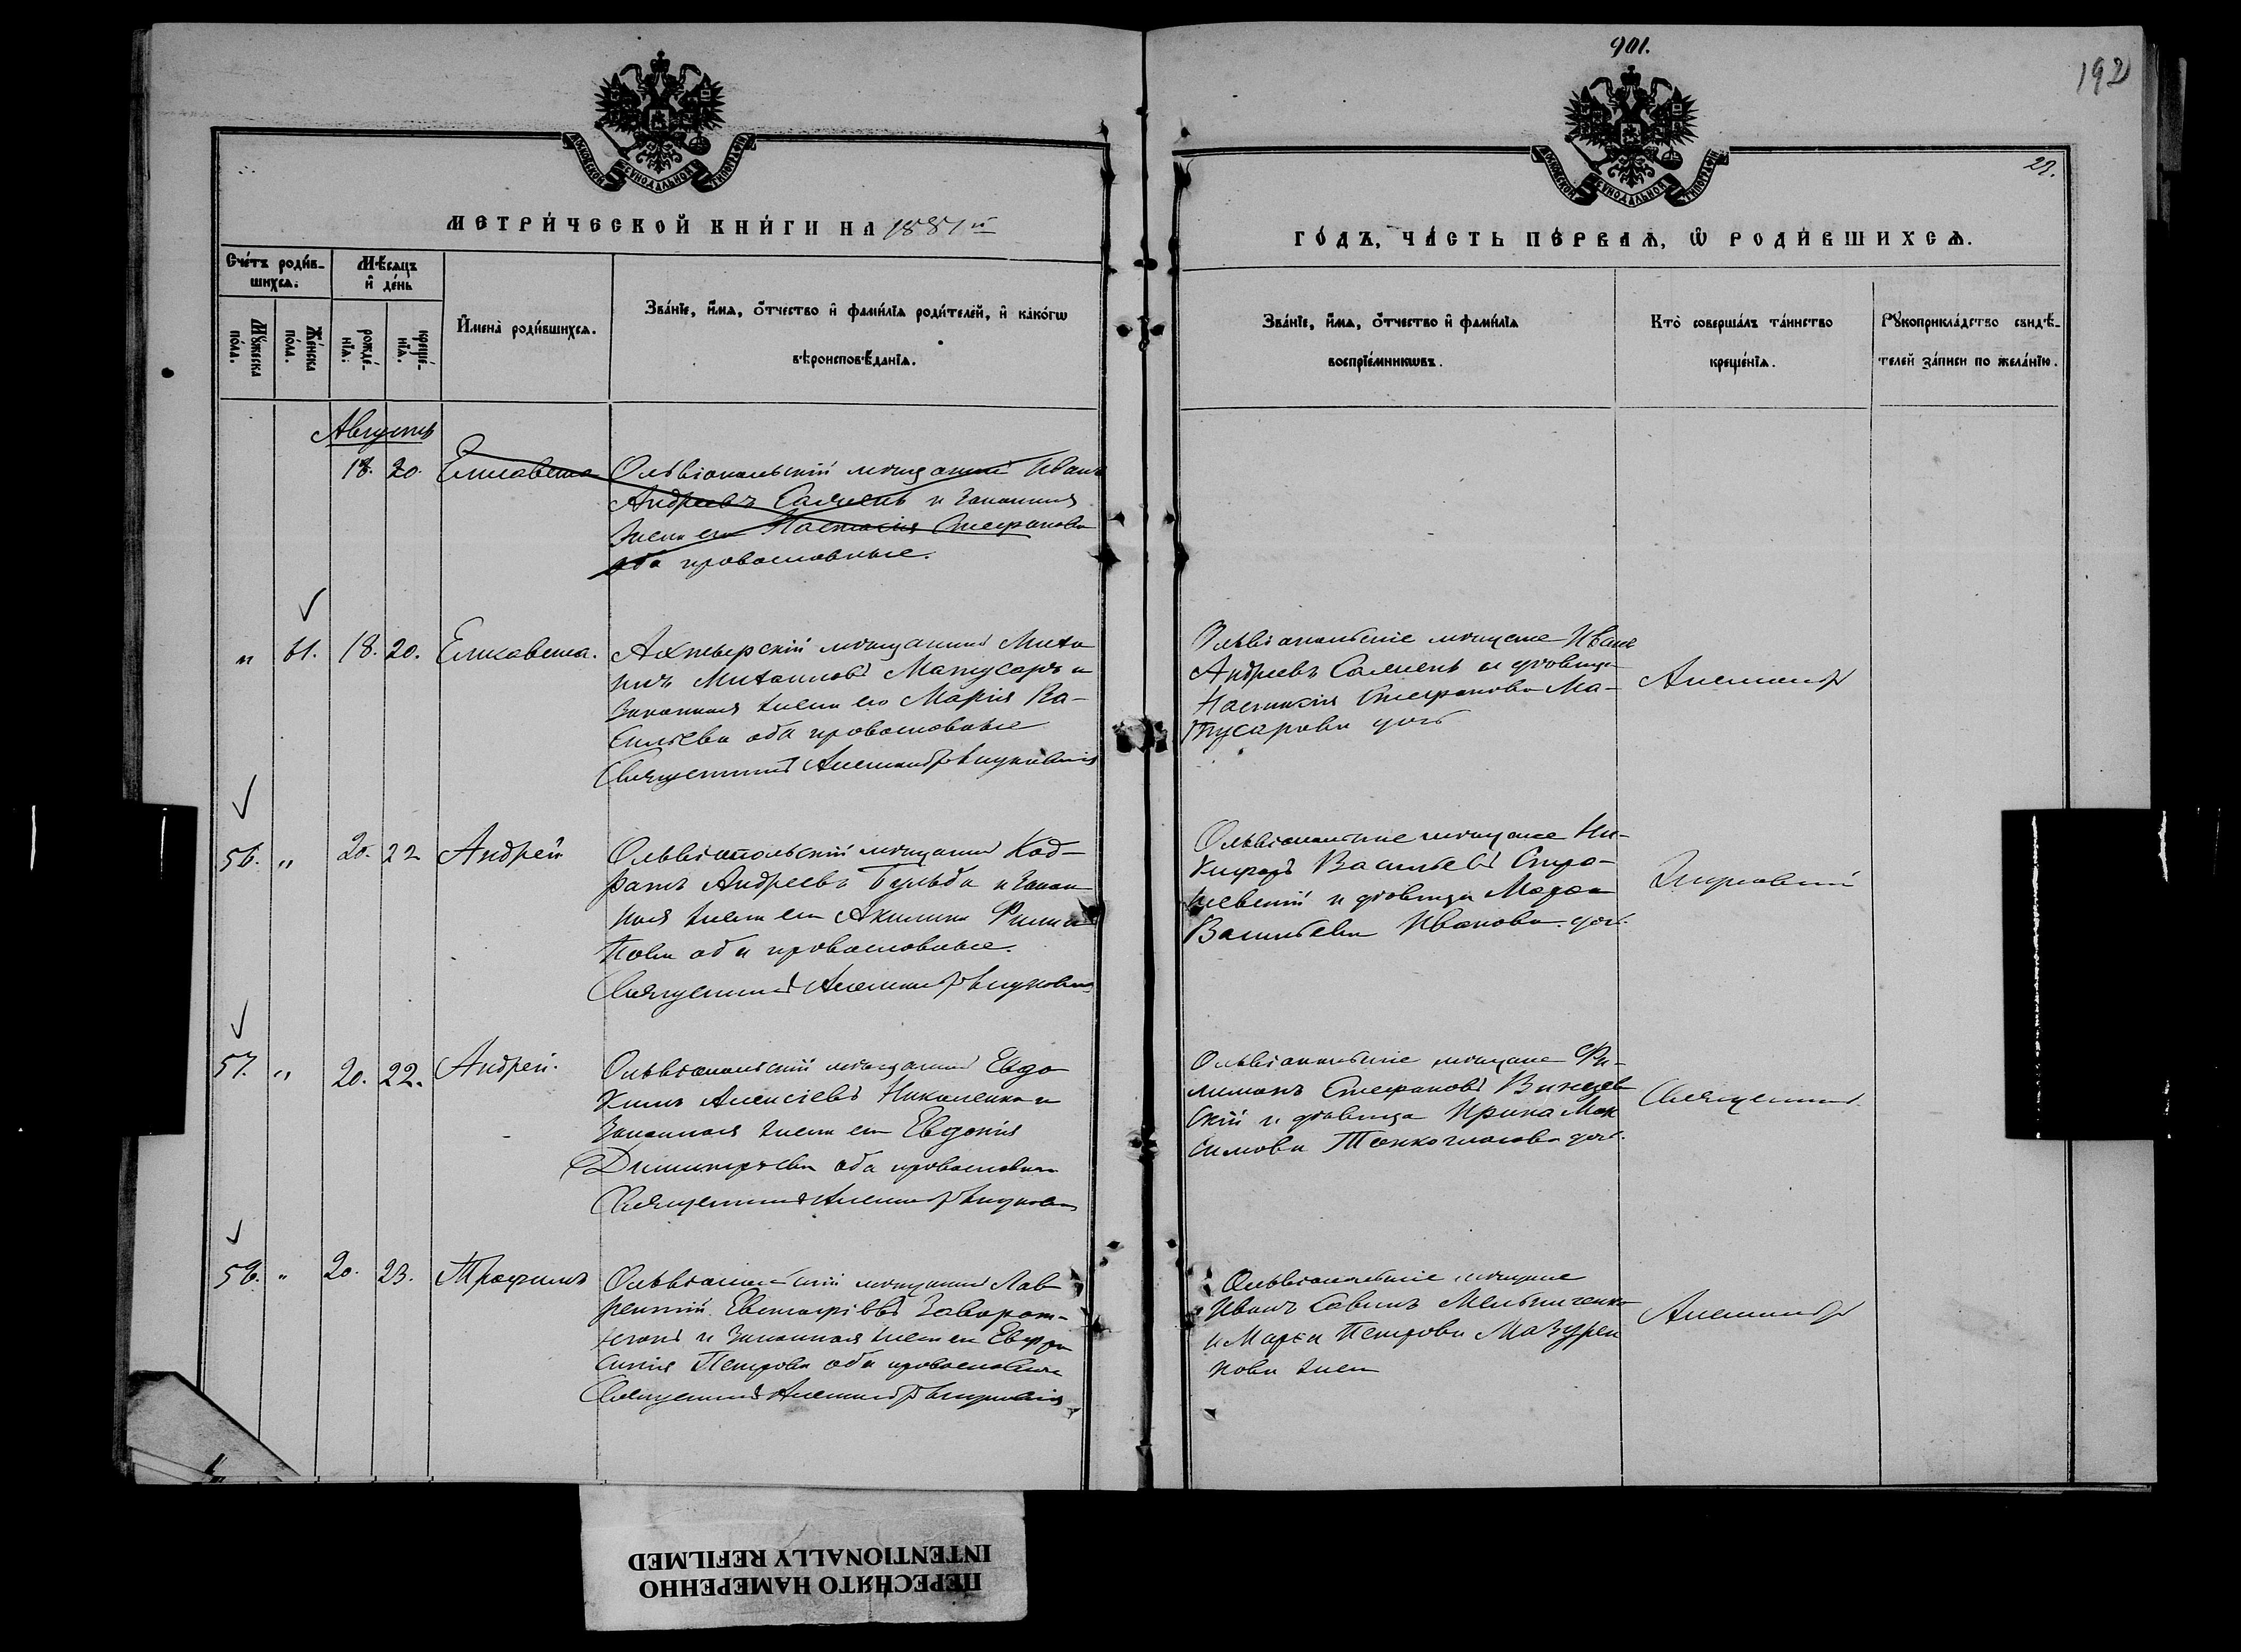 901.
192
22.
МОСКОВСКОЙ СѴНОДАЛЬНОЙ ТИПОГРАФІИ
МОСКОВСКОЙ СѴНОДАЛЬНОЙ ТИПОГРАФІИ
МЕТРИ́ЧЕСКОЙ КНИ́ГИ НА 1881 й
ГО́ДЪ, ЧА́СТЬ ПЕ́РВАѦ, Ѡ҆ РОДИ́ВШИХСѦ.
Сче́тъ роди́в-
шихсѧ.
Мꙋжеска по́ла.
Же́нска по́ла.
Мѣ́сяцъ и҆ де́нь
рожде́-нїѧ.
креще́-нїѧ.
И҆мена̀ роди́вшихсѧ.
Зва́нїе, и҆́мѧ, о҆́тчество и҆ фами́лїѧ роди́телей, и҆ како́гѡ
вѣроисповѣ́данїѧ.
Зва́нїе, и҆́мѧ, о҆́тчество и҆ фами́лїѧ
воспрїе́мникѡвъ.
Кто̀ соверша́лъ та́инство
креще́нїѧ.
Рꙋкоприкла́дство свидѣ́-
телей за́писи по жела́нїю.
Августъ
18. 20. Елисавета
Ольвіопольскій мѣщанинъ Иванъ
Андреевъ и законная
жена его Настасія Стефанова
оба православные.
" 61. 18. 20. Елисавета.
Ахтырскій мѣщанинъ Миха
илъ Михаиловъ Матусаръ и
законная жена его Марія Ва-
сильева оба православные
Священникъ Александръ
Ольвіопольскіе мѣщане Иванъ
Андреевъ и дѣвица
Настасія Стефанова Ма-
тусарова дочь
Александръ
56. " 20. 22 Андрей
Ольвіопольскій мѣщанинъ Код-
ратъ Андреевъ Бульба и закон
ная жена его Акилина Филип
пова оба православные.
Священникъ Александръ
Ольвіопольскіе мѣщане Ни-
кифоръ Васильевъ
и дѣвица
Васильева Иванова дочь.
57. " 20. 22. Андрей.
Ольвіопольскій мѣщанинъ Евдо
кимъ Алексіевъ Николенко и
законная жена его Евдокія
Димитріева оба православные
Священникъ Александръ
Ольвіопольскіе мѣщане Фи-
лимонъ Стефановъ
и дѣвица Ирина Мак
симова Тонкогласова дочь.
Священникъ
58. " 20. 23. Трофимъ
Ольвіопольскій мѣщанинъ Лав
рентій Евстафіевъ
и законная жена его Евфро
синія Петрова оба православные
Священникъ Александръ
Ольвіопольскіе мѣщане
Иванъ Савинъ Мельниченко
и Марѳа Петрова Мазурен
кова жена
Александръ
ПЕРЕСНЯТО НАМЕРЕННО
INTENTIONALLY REFILMED